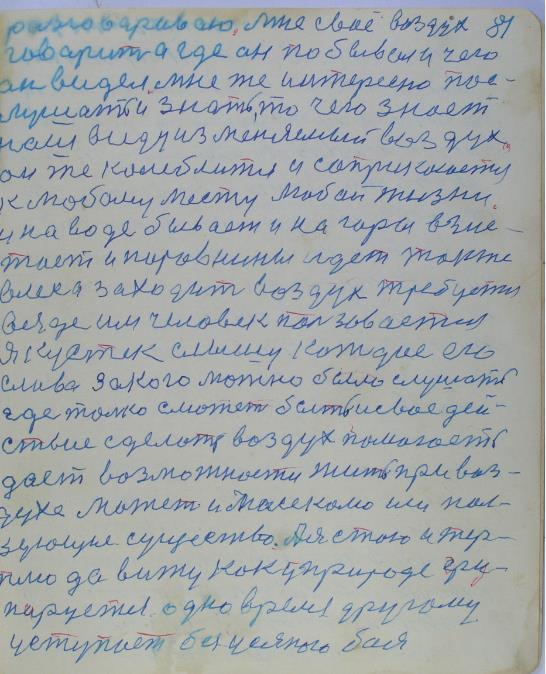 разговариваю. мне своё воздух 81
говорит а где он побывал и чего
он видел. мне же интересно пос-
лушать и знать, то чего знает
наш виду изменяемый воздух.
он же колеблится и соприкосается
к любому месту любой жизни.
и на воде бывает и на горы взле-
тает и поровнины идет также
влеса заходит воздух требуется
везде им человек ползовается
Я слишу каждое его
слива закого можно было слушать
где толко сможет быть и своё дей-
ствие сделать воздух помогаеть
дает возможности жить привоз-
духе может и насекомо или пол-
зующие существо. А я стою и тер-
плю да вижу как у природе гру-
пируется одно время другому
уступает без усяного боя